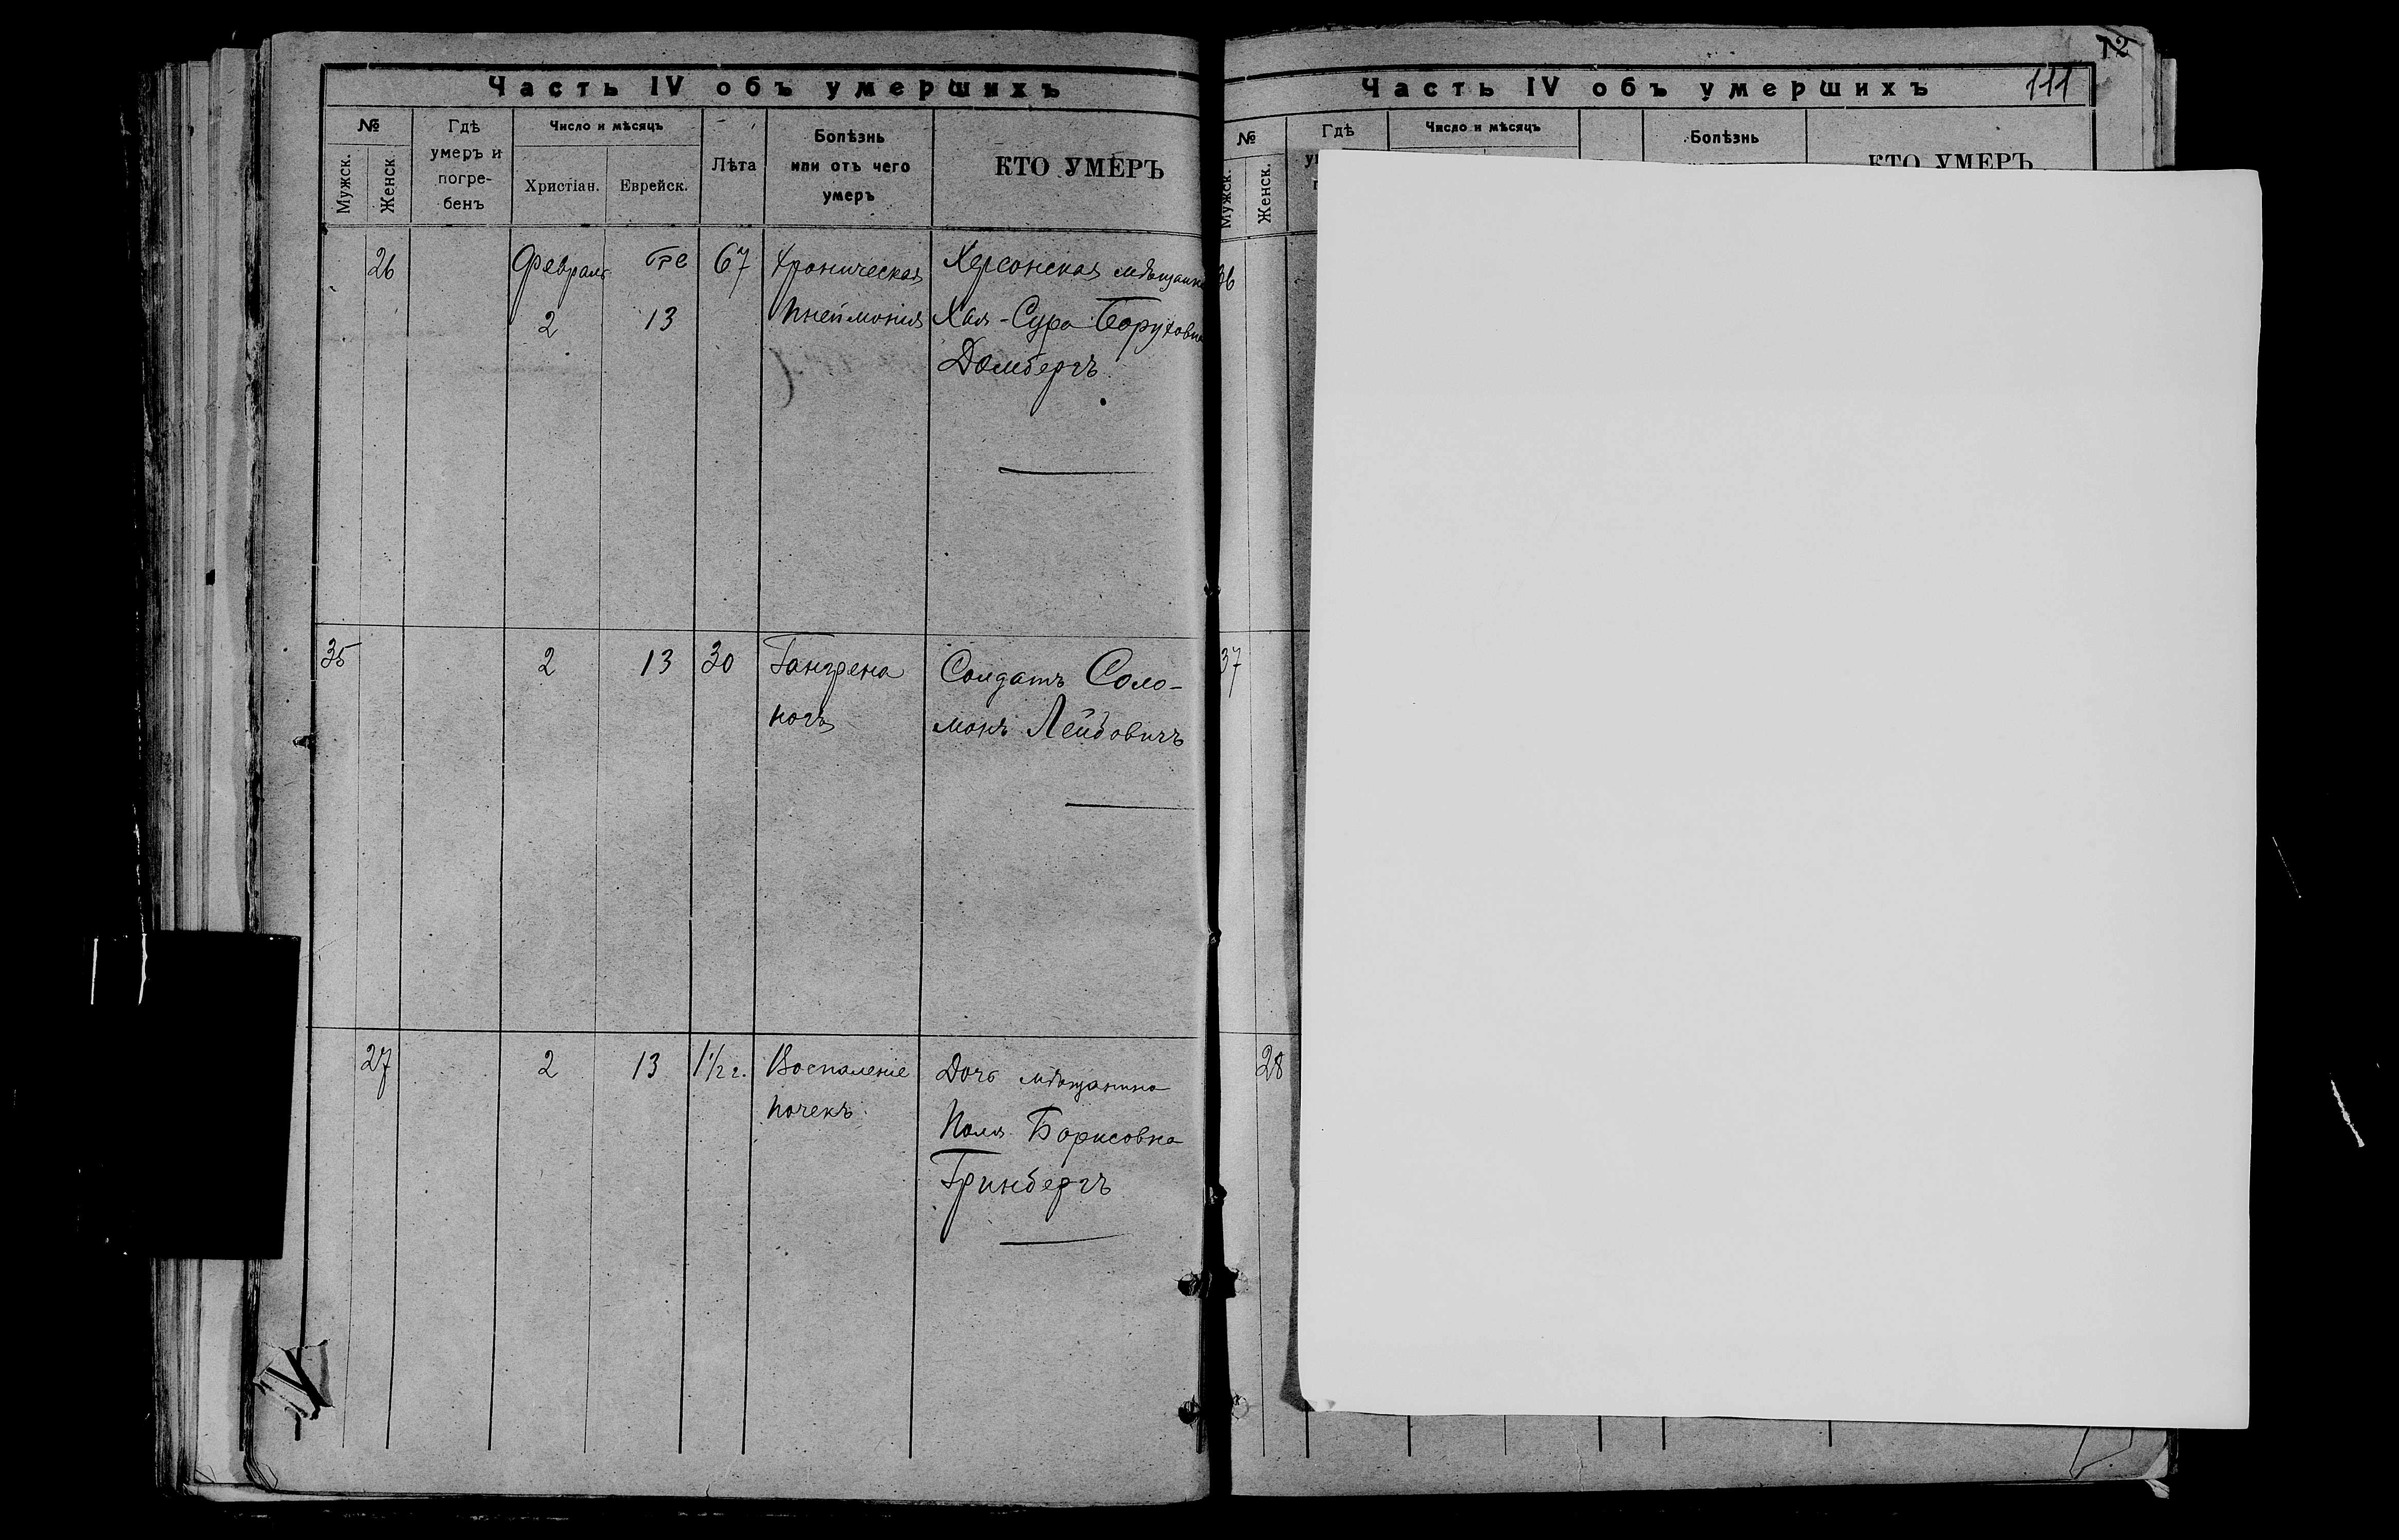 Часть IV объ умершихъ
№
Мужск.
Женск.
Гдѣ
умеръ и
погре-
бенъ
Число и мѣсяцъ
Христіан.
Еврейск.
Лѣта
Болѣзнь
или отъ чего
умеръ
КТО УМЕРЪ
26
Февраль
2
13
67
Хроническая
пнеймонія
Херсонская мѣщанка
Хая-Сура Боруховна
Домбергъ
35
2
13
30
Гангрена
ногъ
Солдатъ Соло-
монъ Лейбовичъ
27
2
13
1 1/2 г.
Воспаленіе
почекъ
Дочь мѣщанина
Поля Борисовна
Гринбергъ
IV
72
Часть IV объ умершихъ
111
№
Мужск.
Женск.
Гдѣ
Число и мѣсяцъ
Болѣзнь
КТО УМЕРЪ
36
37
28